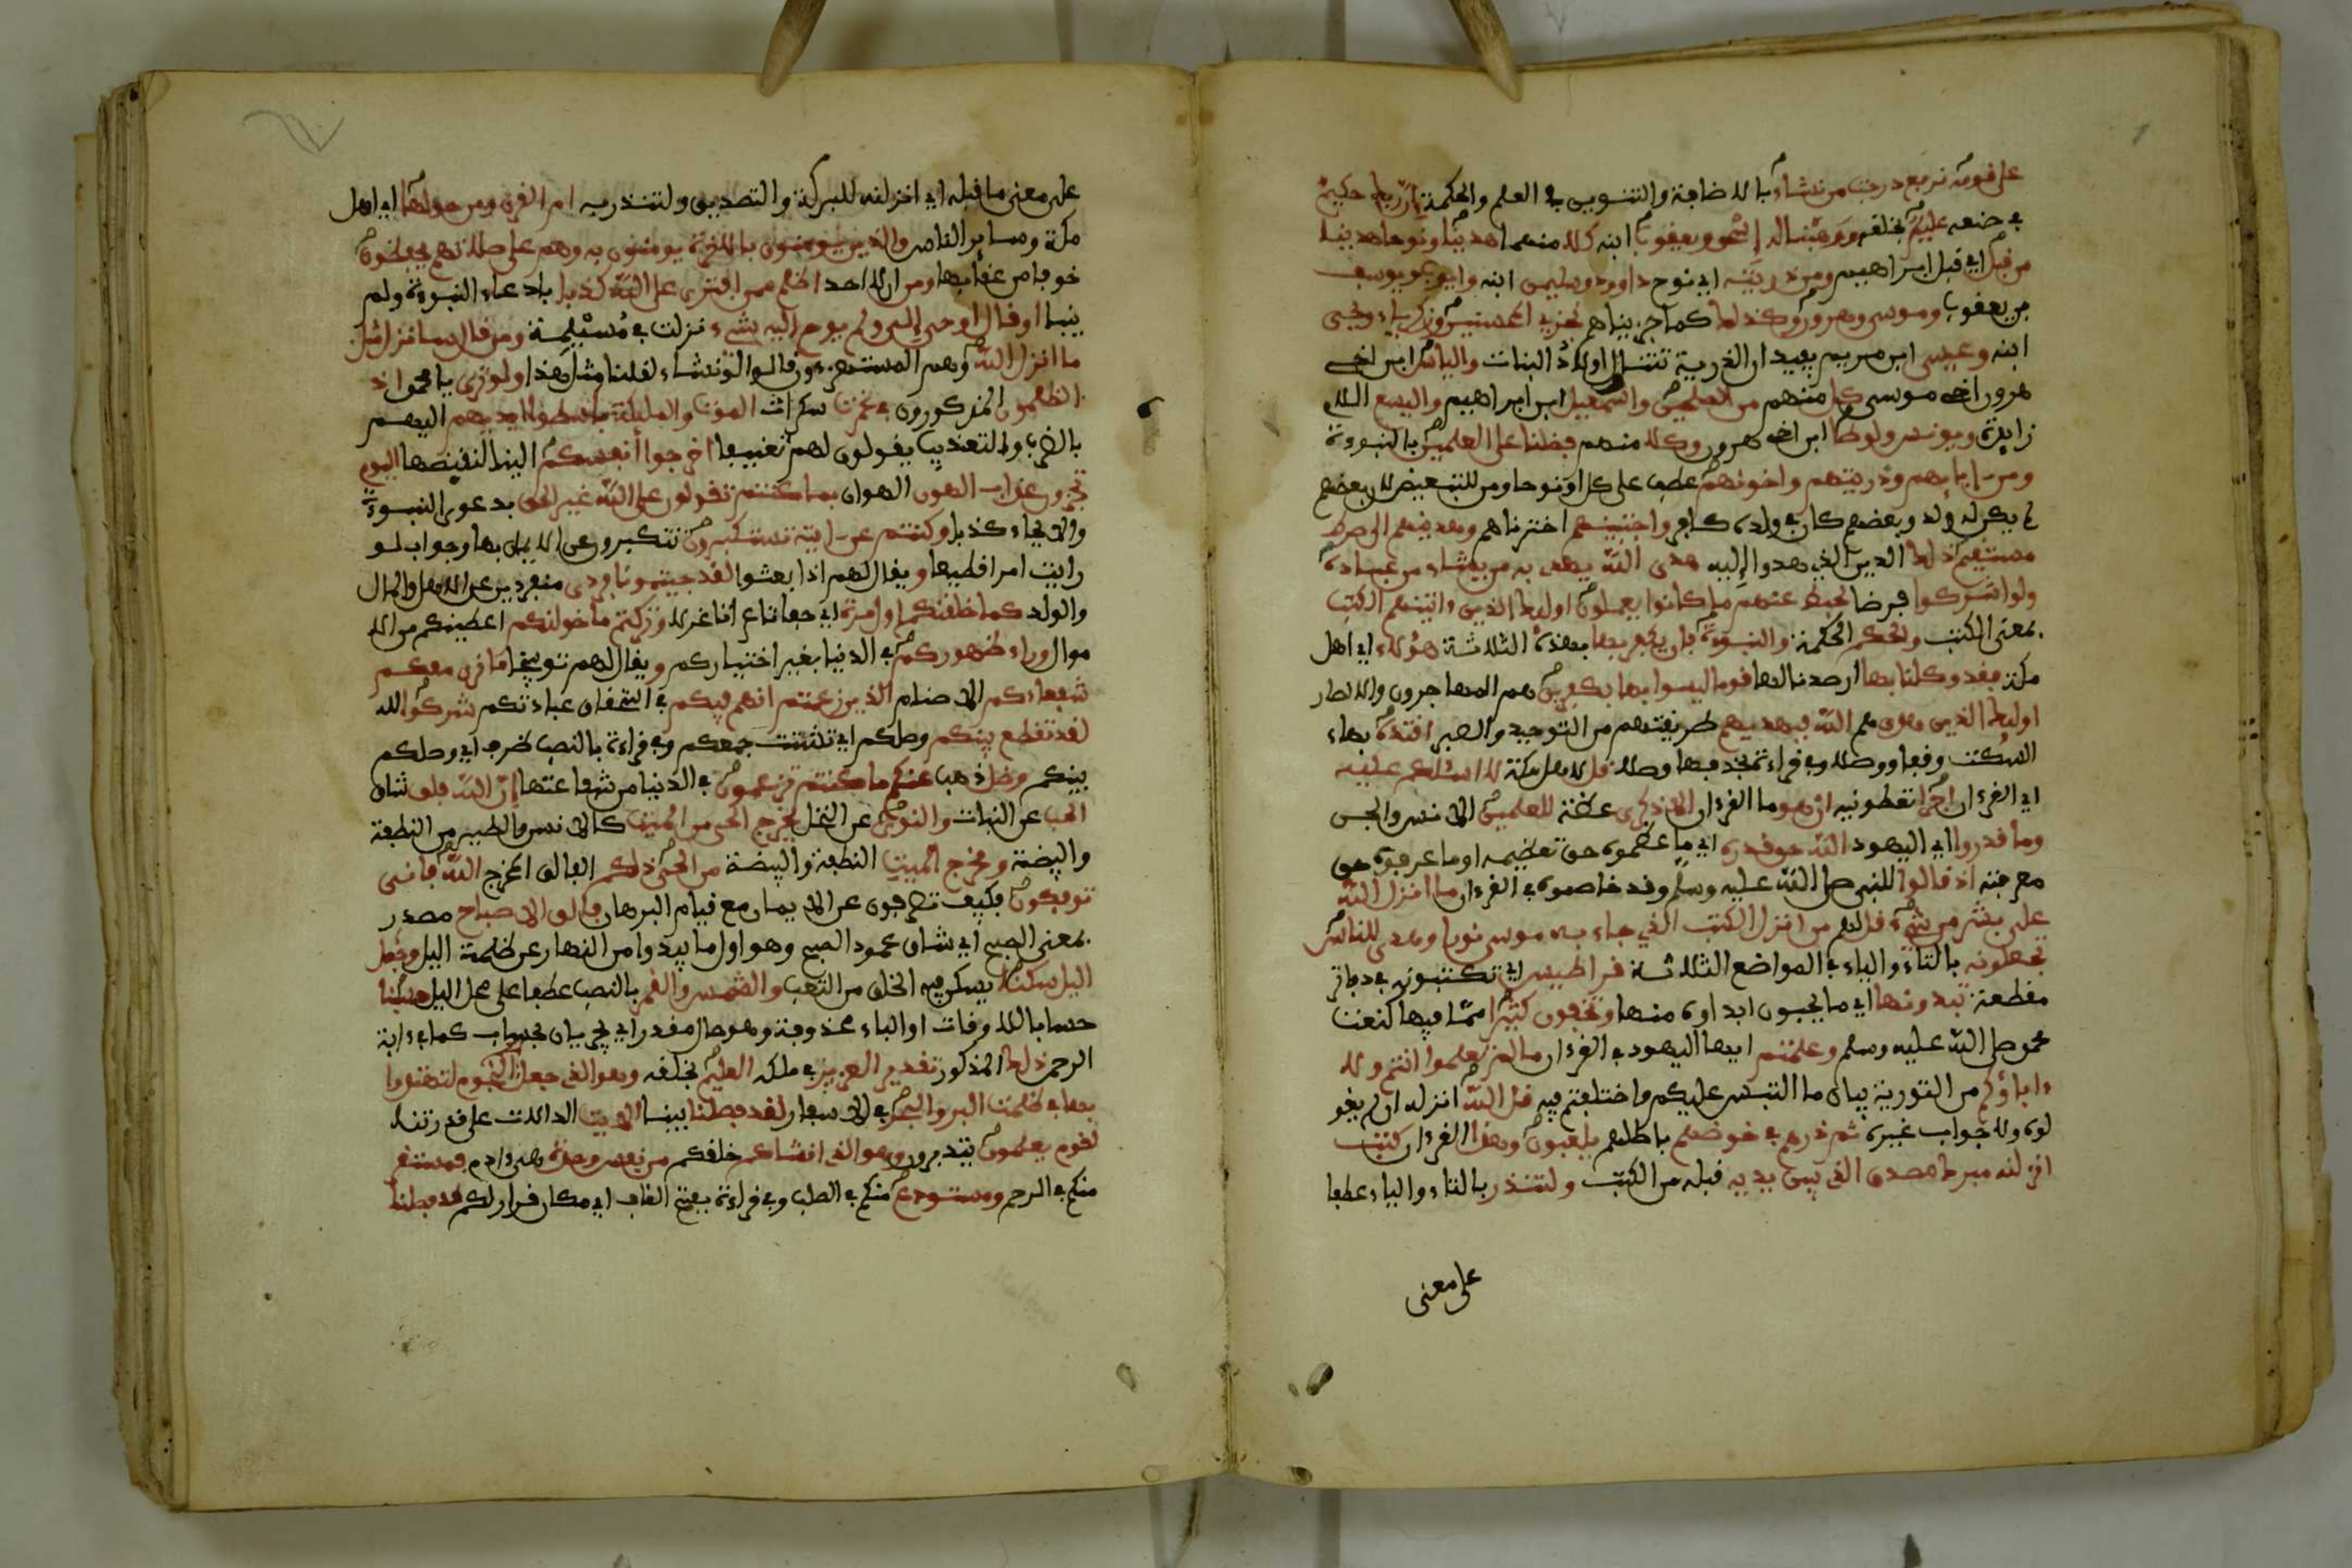 على قومه نرفع درجت من نشاء بالاضافة والتنوين في العلم والحكمة ان ربك حكيم
في صنعه عليم بخلقه ووهبنا له إسحق ويعقوب ابنه كلا منهما هدينا ونوحا هدينا
من قبل اي قبل ابراهيم ومن ذريته اي نوح داوود وسليمن ابنه وايوب ويوسف
بن يعقوب وموسى وهرون وكذلك كما جزيناهم نجزي المحسنين وزكرياء ويحيى
ابنه وعيسى ابن مريم يفيد ان الذرية تتناول اولاد البنات والياس ابن اخي
هرون اخي موسى كل منهم من الصلحين واسمعيل ابن ابراهيم واليسع اللام
زايدة ويونس ولوطا ابن اخي هرون وكلا منهم فضلنا على العلمين بالنبوءة
ومن ءابايهم وذريتهم واخونهم عطف على كلا او نوحا ومن للتبعيض لان بعضهم
لم يكن له ولد وبعضهم كان في ولده كافر واجتبينهم اخترناهم وهدينهم الى صرط
مستقيم ذلك الدين الذي هدوا إليه هدى الله يهدي به من يشاء من عباده
ولو اشركوا فرضا لحبط عنهم ما كانوا يعملون اوليك الذين ءاتينهم الكتب
بمعنى الكتب والحكم الحكمة والنبوءة فان يكفر بها بهذه الثلاثة هؤلاء اي اهل
مكة فقد وكلنا بها ارصدنا لها قوما ليسوا بها بكفرين هم المهاجرون والانصار
اوليك الذين هدى هم الله فبهديهم طريقتهم من التوحيد والصبر اقتده بهاء
السكت وقفا ووصلا وفي قراءة بحذفها وصلا قل لاهل مكة لا اسئلكم عليه
اي القرءان اجرا تعطونيه ان هو ما القرءان الا ذكرى عظة للعلمين الانس والجن
وما قدروا اي اليهود الله حق قدره اي ما عظموه حق تعظيمه او ما عرفوه حق
معرفته اذ قالوا للنبي صلى الله عليه وسلم وقد خاصموه في القرءان ما انزل الله
على بشر من شيء قل لهم من انزل الكتب الذي جاء به موسى نورا وهدى للناس
تجعلونه بالتاء والياء في المواضع الثلاثة قراطيس اي تكتبونه في دفاتر
مقطعة تبدونها اي ما يحبون ابداوه منها وتخفون كثيرا مما فيها كنعت
محمد صلى الله عليه وسلم وعلمتم ايها اليهود في القرءان ما لم تعلموا انتم ولا
ءاباؤكم من التورية ببيان ما التبس عليكم واختلفتم فيه قل الله انزله ان لم يقو
لوه ولا جواب غيره ثم ذرهم في خوضهم باطلهم يلعبون وهذا القرءان كتب
انزلنه مبرك مصدق الذي بين يديه قبله من الكتب ولتنذر بالتاء والياء عطفا
على معنى
على معنى ما قبله اي انزلنه للبركة والتصديق ولتنذر به ام القرى ومن حولها اي اهل
مكة وساير الناس والذين يومنون بالاخرة يومنون به وهم على صلاتهم يحافظون
خوفا من عقابها ومن اي لا احد اظلم ممن افترى على الله كذبا بادعاء النبوءة ولم
ينبا او قال اوحي إلي ولم يوح اليه شيء نزلت في مسيلمة ومن قال سانزل مثل
ما انزل الله وهم المستهزءون قالوا لو نشاء لقلنا مثل هذا ولو ترى يا محمد اذ
الظلمون المذكورون في غمرت سكرات الموت والمليكة باسطوا ايديهم اليهم
بالضرب والتعذيب يقولون لهم تعنيفا اخرجوا أنفسكم الينا لنقبضها اليوم
تجزون عذاب الهون الهوان بما كنتم تقولون على الله غير الحق بدعوى النبوءة
والايحاء كذبا وكنتم عن ءايته تستكبرون تتكبرون عن الايمان بها وجواب لو
رايت امرا فظيعا ويقال لهم اذا بعثوا لقد جيتمونا فردى منفردين عن الاهل والمال
والولد كما خلقنكم اول مرة اي حفاة عراة غرلا وتركتم ما خولنكم اعطينكم من الا
موال وراء ظهوركم في الدنيا بغير اختياركم ويقال لهم توبيخا ما نرى معكم
شفعاءكم الاصنام الذين زعمتم انهم فيكم في استحقاق عبادتكم شركوا الله
لقد تقطع بينكم وصلكم اي تشتت جمعكم وفي قراءة بالنصب ظرف اي وصلكم
بينكم وضل ذهب عنكم ما كنتم تزعمون في الدنيا من شفاعتها إن الله فلق شاق
الحب عن النبات والنوى عن النخل يخرج الحي من الميت كالانس والطير من النطفة
والبيضة ومخرج الميت النطفة والبيضة من الحي ذلكم الفالق المخرج الله فانى
توفكون فكيف تصرفون عن الايمان مع قيام البرهان فالق الاصباح مصدر
بمعنى الصبح اي شاق عمود الصبح وهو اول ما يبدوا من النهار عن ظلمة اليل وجعل
اليل سكنا يسكن فيه الخلق من التعب والشمس والقمر بالنصب عطفا على محل اليل حسبنا
حسابا للاوقات او الباء محذوفة وهو حال مقدر اي يجريان بحسبان كما في ءاية
الرحمن ذلك المذكور تقدير العزيز في ملكه العليم بخلقه وهو الذي جعل لكم النجوم لتهتدوا
بها في ظلمت البر والبحر في الاسفار لقد فصلنا بينا الايت الدالات على قدرتنا
لقوم يعلمون يتدبرون وهو الذي انشاكم خلقكم من نفس وحدة هي ءادم فمستقر
منكم في الرحم ومستودع منكم في الصلب وفي قراءة بفتح القاف اي مكان قرار لكم قد فصلنا